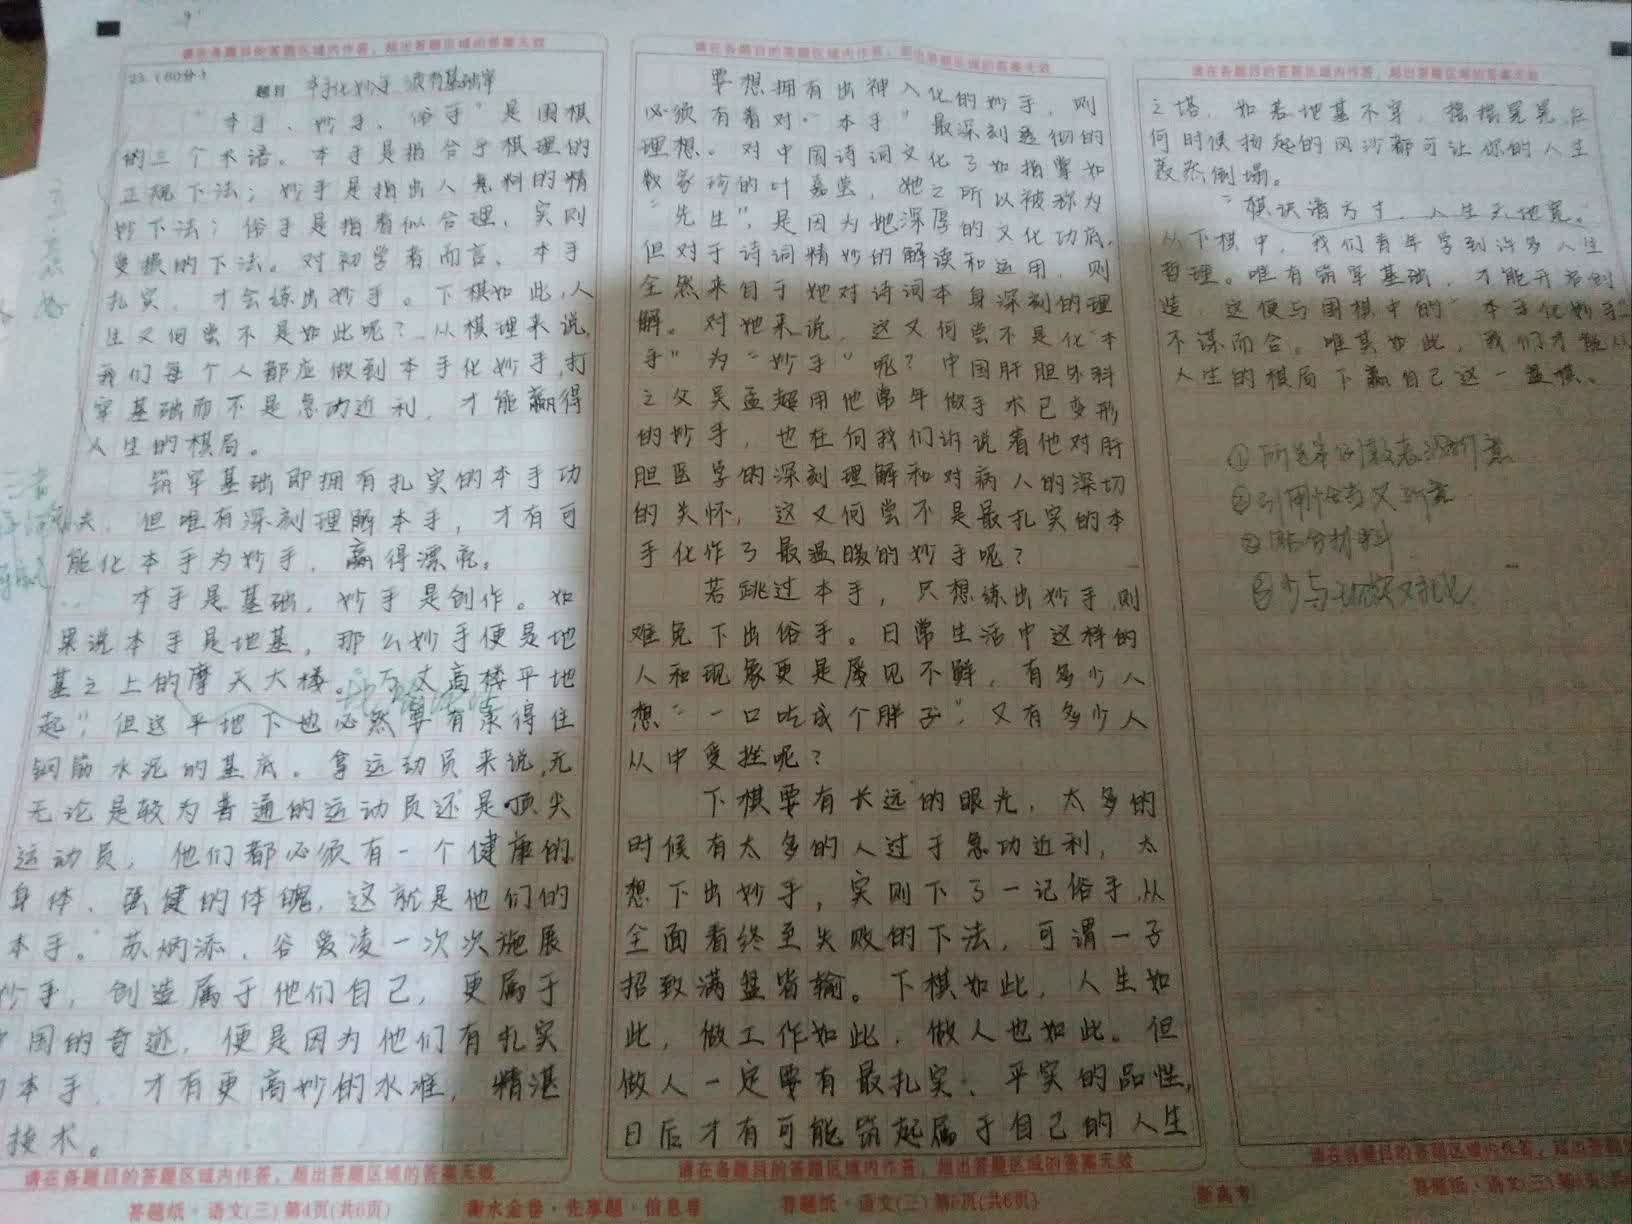 请在各题目的答题区域内作答，超出答题区域的答案无效
23.（60分）
题目 本手化妙手 须有基础牢
"本手、妙手、俗手"是围棋
的三个术语。本手是指合乎棋理的
正规下法；妙手是指出人意料的精
妙下法；俗手是指看似合理，实则
受损的下法。对初学者而言，本手
扎实，才会练出妙手。下棋如此，人
生又何尝不是如此呢？从棋理来说，
我们每个人都应做到本手化妙手，打
牢基础而不是急功近利，才能赢得
人生的棋局。
筑牢基础即拥有扎实的本手功
夫，但唯有深刻理解本手，才有可
能化本手为妙手，赢得漂亮。
本手是基础，妙手是创作。如
果说本手是地基，那么妙手便是地
基之上的摩天大楼。"万丈高楼平地
起"，但这平地下也必然要有承得住
钢筋水泥的基底。拿运动员来说，无
无论是较为普通的运动员还是顶尖
运动员，他们都必须有一个健康的
身体、强健的体魄，这就是他们的
本手。苏炳添、谷爱凌一次次施展
妙手，创造属于他们自己，更属于
中国的奇迹，便是因为他们有扎实
的本手，才有更高妙的水准，精湛
技术。
请在各题目的答题区域内作答，超出答题区域的答案无效
答题纸·语文(三) 第4页(共6页)
请在各题目的答题区域内作答，超出答题区域的答案无效
要想拥有出神入化的妙手，则
必须有着对"本手"最深刻透彻的
理想。对中国诗词文化了如指掌如
数家珍的叶嘉莹，她之所以被称为
"先生"，是因为她深厚的文化功底，
但对于诗词精妙的解读和运用，则
全然来自于她对诗词本身深刻的理
解。对她来说，这又何尝不是化"本
手"为"妙手"呢？中国肝胆外科
之父吴孟超用他常年做手术已变形
的妙手，也在向我们诉说着他对肝
胆医学的深刻理解和对病人的深切
的关怀，这又何尝不是最扎实的本
手化作了最温暖的妙手呢？
若跳过本手，只想练出妙手，则
难免下出俗手。日常生活中这样的
人和现象更是屡见不鲜，有多少人
想"一口吃成个胖子"，又有多少人
从中受挫呢？
下棋要有长远的眼光，太多的
时候有太多的人过于急功近利，太
想下出妙手，实则下了一记俗手，从
全面看终至失败的下法，可谓一子
招致满盘皆输。下棋如此，人生如
此，做工作如此，做人也如此。但
做人一定要有最扎实、平实的品性，
日后才有可能筑起属于自己的人生
请在各题目的答题区域内作答，超出答题区域的答案无效
衡水金卷·先享题·信息卷
答题纸·语文(三) 第5页(共6页)
请在各题目的答题区域内作答，超出答题区域的答案无效
之塔，如若地基不牢，摇摇晃晃，任
何时候扬起的风沙都可让你的人生
轰然倒塌。
"棋诀谱方寸，人生天地宽。"
从下棋中，我们青年学到许多人生
哲理。唯有筑牢基础，才能开拓创
造，这便与围棋中的"本手化妙手"
不谋而合。唯其如此，我们才能从
人生的棋局下赢自己这一盘棋。
②引用恰当
联合材料
请在各题目的答题区域内作答，超出答题区域的
新高考
答题纸·语文(三)